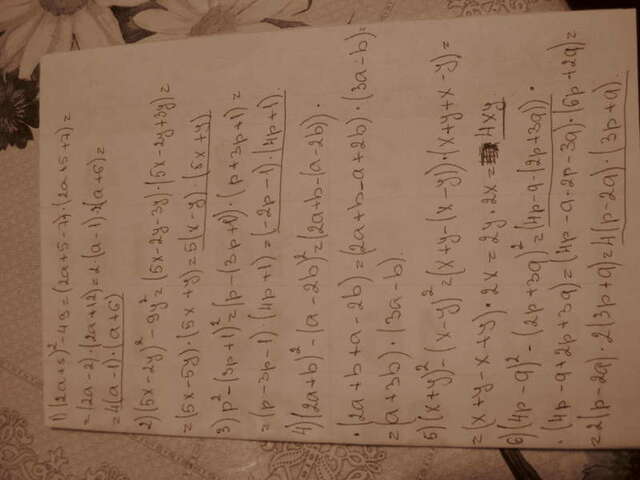 1) (2a+5)² - 49 = (2a+5-7)·(2a+5+7) =
= (2a-2)·(2a+12) = 2(a-1)·2(a+6) =
= 4(a-1)·(a+6)
2) (5x-2y)² - 9y² = (5x-2y-3y)·(5x-2y+3y) =
= (5x-5y)·(5x+y) = 5(x-y)·(5x+y)
3) p² - (3p+1)² = (p-(3p+1))·(p+3p+1) =
= (p-3p-1)·(4p+1) = (-2p-1)·(4p+1)
4) (2a+b)² - (a-2b)² = (2a+b-(a-2b))·
·(2a+b+a-2b) = (2a+b-a+2b)·(3a-b) =
= (a+3b)·(3a-b).
5) (x+y)² - (x-y)² = (x+y-(x-y))·(x+y+x-y) =
= (x+y-x+y)·2x = 2y·2x = 4xy
6) (4p-q)² - (2p+3q)² = (4p-q-(2p+3q))·
·(4p-q+2p+3q) = (4p-q-2p-3q)·(6p+2q) =
= 2(p-2q)·2(3p+q) = 4(p-2q)·(3p+q).